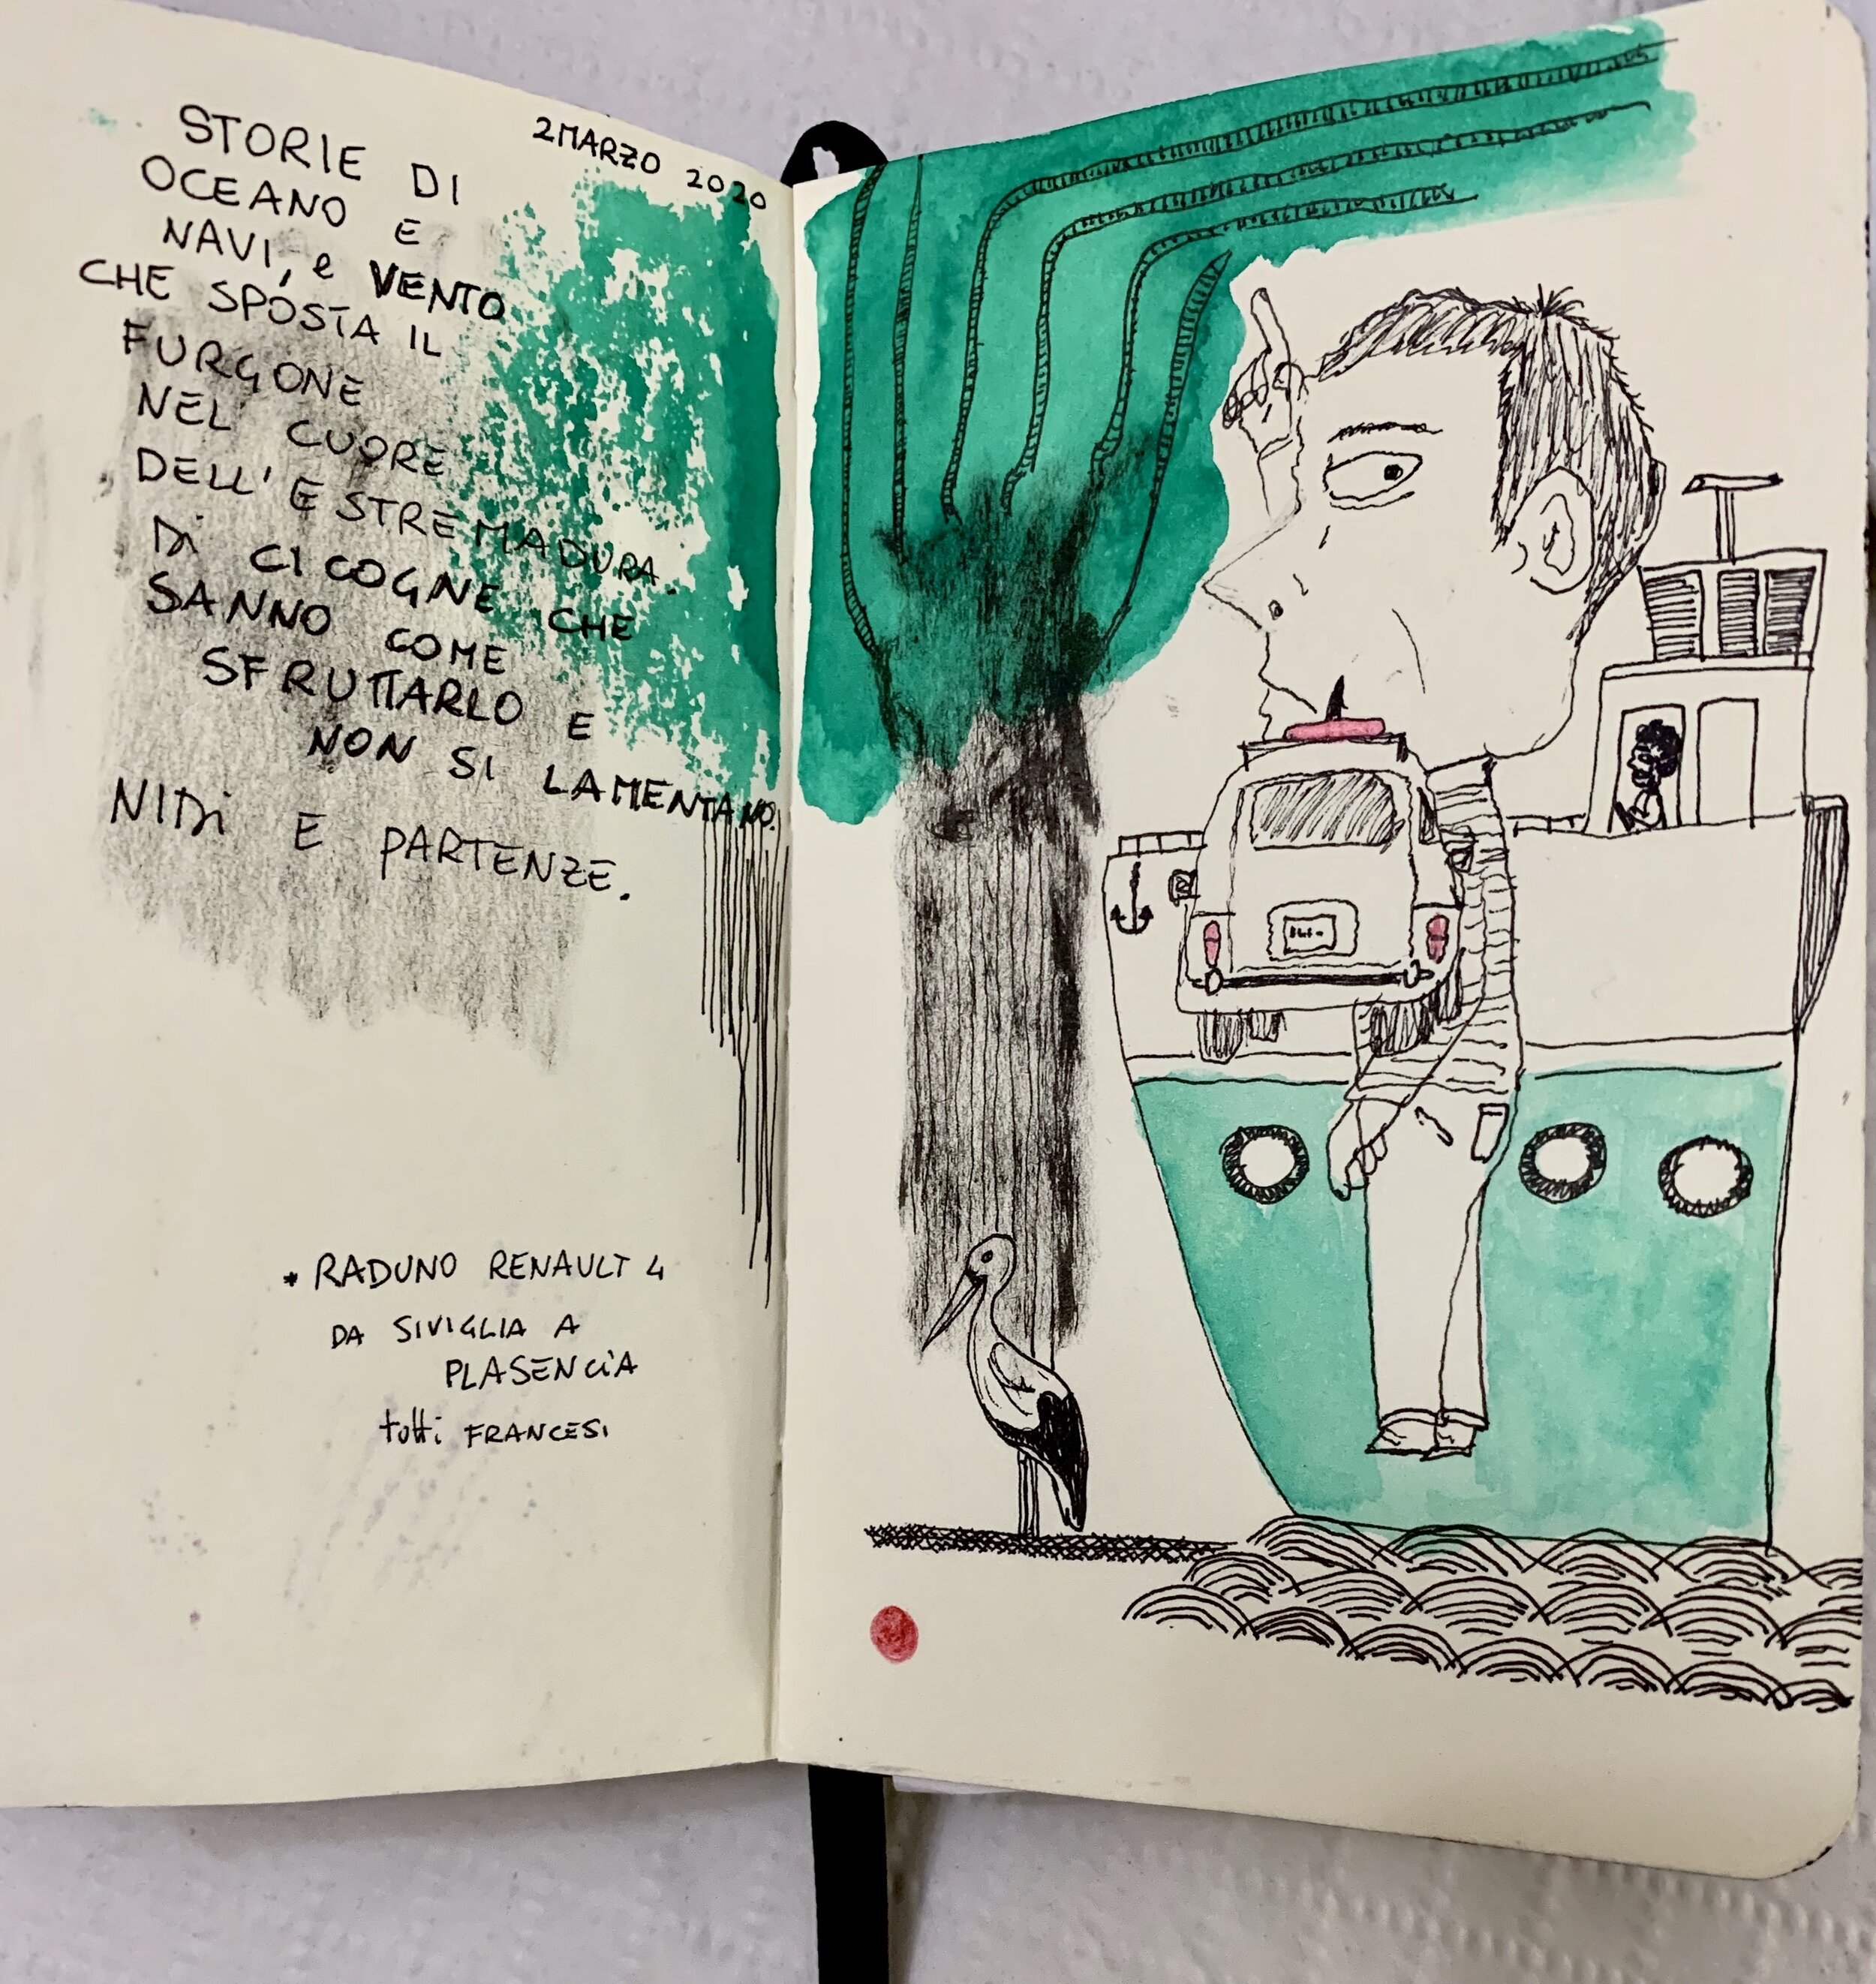 2 MARZO 2020
STORIE DI
OCEANO E
NAVI, e VENTO
CHE SPOSTA IL
FURGONE
NEL CUORE
DELL'ESTREMADURA.
Di CICOGNE CHE
SANNO COME
SFRUTTARLO E
NON SI LAMENTANO.
NIDi E PARTENZE.
* RADUNO RENAULT 4
DA SIVIGLIA A
PLASENCiA
tutti FRANCESI